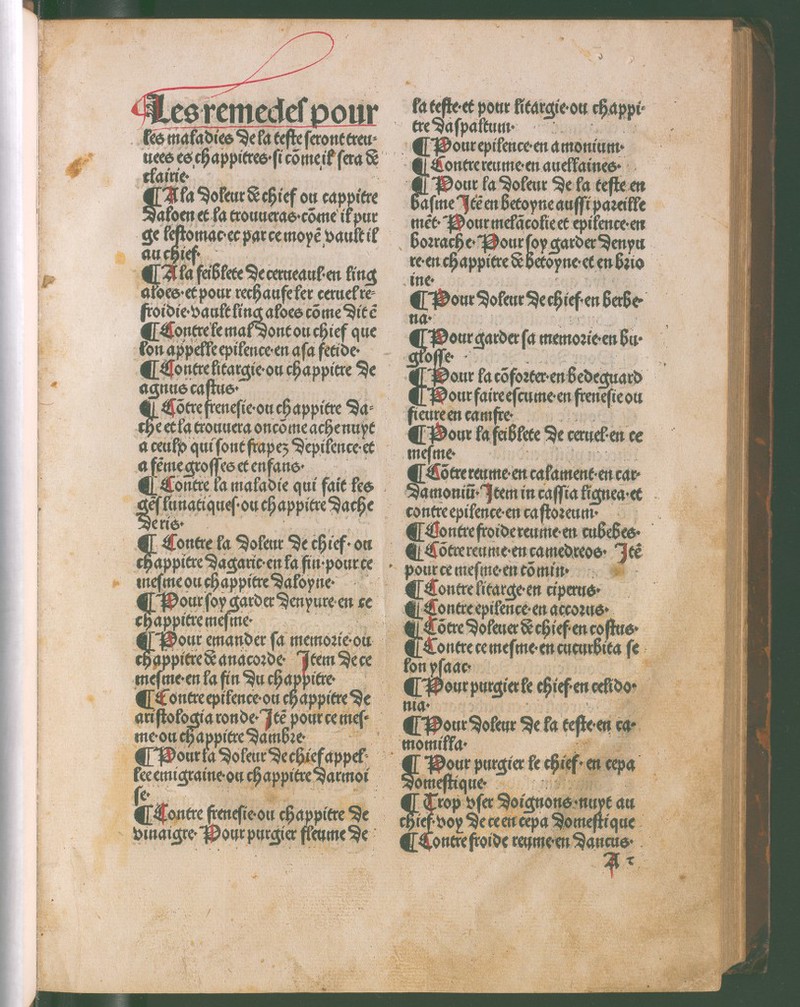 Les remedes pour
les maladies de la teste seront treu-
uees es chappitres· si cõme il sera de
clairie·
¶ A la doleur de chief ou cappitre
daloen et la trouueras· cõme il pur
ge lestomac· et par ce moyẽ vault il
au chief·
¶ A la feiblete de cerueaul· en ling
aloes· et pour rechaufeler ceruel re-
froidie· vault ling aloes cõme dit ẽ
¶ Contre le mal dont ou chief que
lon appelle epilence· en asa fetide·
¶ Contre litargie· ou chappitre de
agnus castus·
¶ Cõtre frenesie· ou chappitre da-
che et la trouuera on cõme ache nuyt
a ceulp qui sont frapez depilence· et
a fẽme grosses et enfans·
¶ Contre la maladie qui fait les
gẽs lunatiques· ou chappitre dache
de ris·
¶ Contre la doleur de chief· ou
chappitre dagaric· en la fin· pour ce
mesme ou chappitre daloyne·
¶ Pour soy garder denyure· en ce
chappitre mesme·
¶ Pour emander sa memoire· ou
chappitre de anacorde· Item de ce
mesme· en la fin du chappitre·
¶ Contre epilence· ou chappitre de
aristologia ronde· Itẽ pour ce mes-
me· ou chappitre dambre·
¶ Pour la doleur de chief appel-
lee emigraine· ou chappitre darmoi
se·
¶ Contre frenesie· ou chappitre de
vinaigre· Pour purgier fleume de
la teste· et pour litargie· ou chappi-
tre daspaltum·
¶ Pour epilence· en amonium·
¶ Contre reume· en auellaines·
¶ Pour la doleur de la teste en
basme Itẽ en betoyne aussi pareille
mẽt· Pour melãcolie et epilence· en
borrache· Pour soy garder denyu
re· en chappitre de betoyne· et en brio
ine·
¶ Pour doleur de chief· en berbe-
na·
¶ Pour garder sa memoire· en bu-
glosse·
¶ Pour la cõforter· en bedeguard
¶ Pour faire escume· en frenesie ou
fieure en camfre·
¶ Pour la feiblete de ceruel· en ce
mesme·
¶ Cõtre reume· en calament· en car-
damoniũ· Item in cassia lignea· et
contre epilence· en castoreum·
¶ Contre froide reume· en cubebes·
¶ Cõtre reume· en camedreos· Itẽ
pour ce mesme· en cõmin·
¶ Contre litarge· en ciperus·
¶ Contre epilence· en accorus·
¶ Cõtre doleuer de chief· en costus·
¶ Contre ce mesme· en cucurbita se
lon ysaac·
¶ Pour purgier le chief· en celido-
nia·
¶ Pour doleur de la teste· en ca-
momilla·
¶ Pour purgier le chief· en cepa
domestique·
¶ Trop vser doignons· nuyt au
chief· voy de ce en cepa domestique
¶ Contre froide reume· en daucus·
A